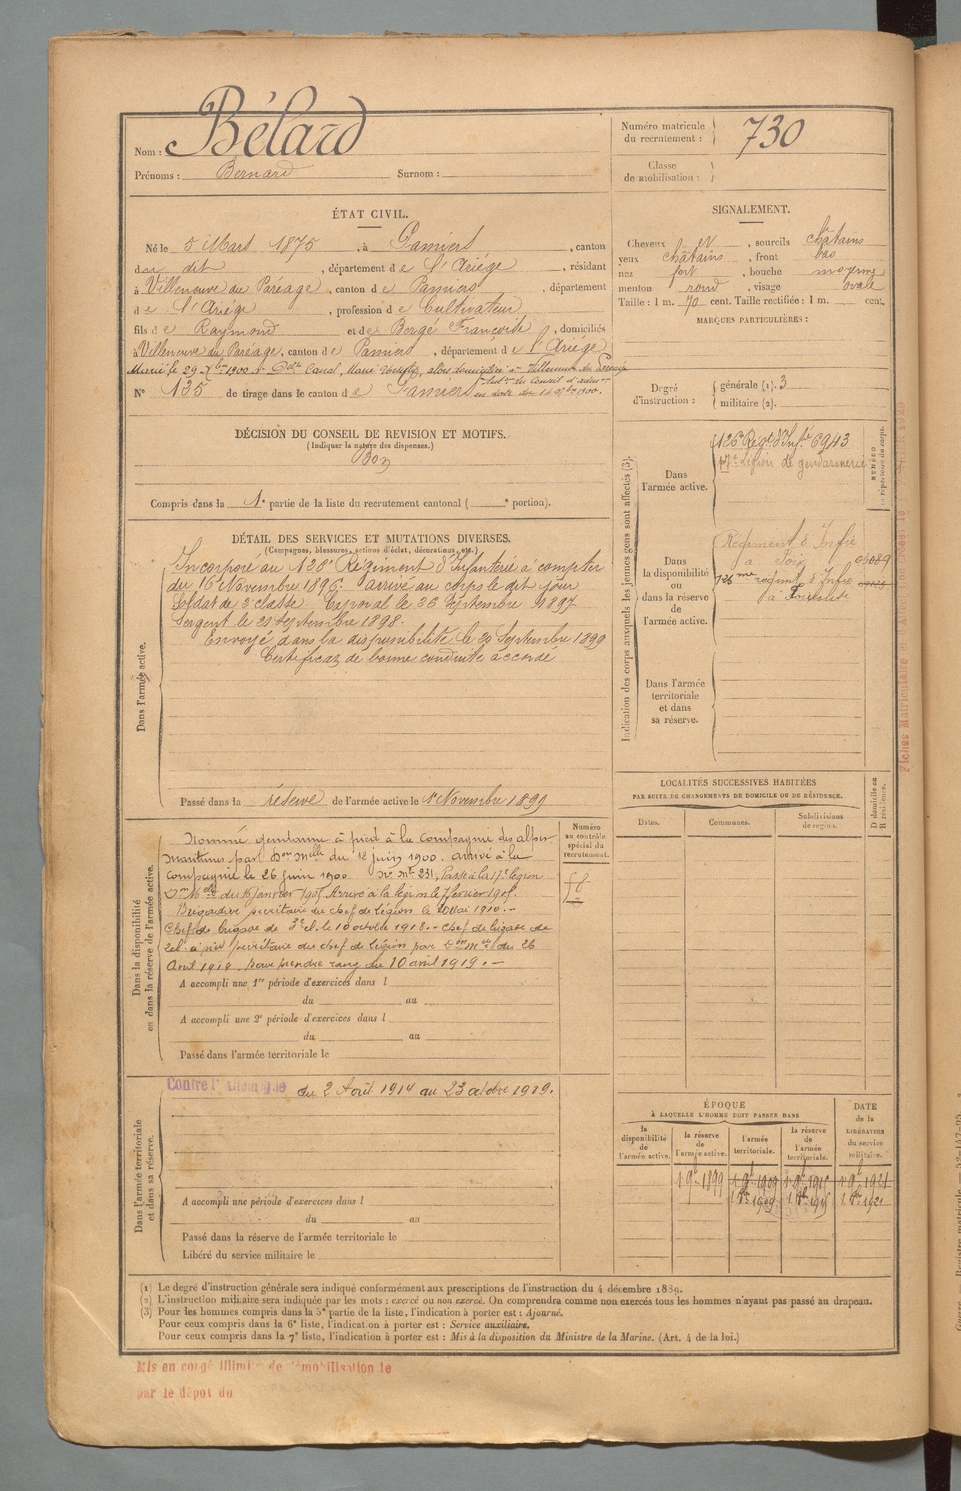 Nom : Bélard
Prénoms : Bernard Surnom :
Numéro matricule du recrutement : 730
Classe de mobilisation :
ÉTAT CIVIL.
Né le 5 Mars 1875, à Pamiers, canton
du dit, département de l'Ariége, résidant
à Villeneuve du Paréage, canton de Pamiers, département
de l'Ariége, profession de Cultivateur
fils de Raymond et de Bergé Françoise, domiciliés
à Villeneuve du Paréage, canton de Pamiers, département de l'Ariége
Marié le 29 1900 à Canal, Marie alors domiciliée à Villeneuve du Paréage
N° 135 de tirage dans le canton de Pamiers
SIGNALEMENT.
Cheveux , sourcils châtains
yeux châtains, front bas
nez fort, bouche moyenne
menton rond, visage ovale
Taille : 1 m. 70 cent. Taille rectifiée : 1 m. cent.
MARQUES PARTICULIÈRES :
Degré d'instruction : générale (1). 3
militaire (2).
DÉCISION DU CONSEIL DE REVISION ET MOTIFS.
(Indiquer la nature des dispenses.)
Bon
Compris dans la 1e partie de la liste du recrutement cantonal ( e portion).
DÉTAIL DES SERVICES ET MUTATIONS DIVERSES.
(Campagnes, blessures, actions d'éclat, décorations, etc.)
Dans l'armée active.
Incorporé au Régiment d'Infanterie à compter
du 16 Novembre 1896. arrivé au corps le dit jour
Soldat de 2e classe. Caporal le 26 Septembre 1897
Sergent le 21 Septembre 1898.
Envoyé dans la disponibilité le 20 Septembre 1899
Certificat de bonne conduite accordé
Passé dans la réserve de l'armée active le 1er Novembre 1899
Indication des corps auxquels les jeunes gens sont affectés (3).
NUMÉRO au répertoire du corps.
Dans l'armée active.
126e Régt d'Infie 6943
17e Légion de gendarmerie
Dans la disponibilité ou dans la réserve de l'armée active.
Régiment d'Infie
à Foix 03089
régiment d'Infie
à
Dans l'armée territoriale et dans sa réserve.
Fiches Matriculaire et
LOCALITÉS SUCCESSIVES HABITÉES
PAR SUITE DE CHANGEMENTS DE DOMICILE OU DE RÉSIDENCE.
Dates. Communes. Subdivisions de région. D domicile ou R résidence.
Dans la disponibilité ou dans la réserve de l'armée active.
Numéro au contrôle spécial du recrutement.
Nommé gendarme à pied à la Compagnie des alpes
maritimes par Don Mlle du 12 juin 1900. arrivé à la
compagnie le 26 juin 1900. No Mle 231. Passé à la 17e légion
Don Mlle du 16 janvier 1905. Arrivé à la légion le 7 février 1905.
Brigadier secrétaire du chef de légion le 20 Mai 1910.-
Chef de brigade de 3e cl. le 10 octobre 1918.- Chef de brigade de
2e cl à pied secrétaire du chef de légion par Don Mle du 26
Avril 1919, pour prendre rang du 10 avril 1919.-
A accompli une 1re période d'exercices dans l
du au
A accompli une 2e période d'exercices dans l
du au
Passé dans l'armée territoriale le
Dans l'armée territoriale et dans sa réserve.
Contre l'Allemagne du 2 Août 1914 au 23 octobre 1919.
A accompli une période d'exercices dans l
du au
Passé dans la réserve de l'armée territoriale le
Libéré du service militaire le
ÉPOQUE
À LAQUELLE L'HOMME DOIT PASSER DANS
la disponibilité de l'armée active. la réserve de l'armée active. l'armée territoriale. la réserve de l'armée territoriale.
DATE de la LIBÉRATION du service militaire.
1 9bre 1899 1 9bre 1909 1 9bre 1915 1 9bre 1921
1 8bre 1909 1 8bre 1915 1 8bre 1921
(1) Le degré d'instruction générale sera indiqué conformément aux prescriptions de l'instruction du 4 décembre 1889.
(2) L'instruction militaire sera indiquée par les mots : exercé ou non exercé. On comprendra comme non exercés tous les hommes n'ayant pas passé au drapeau.
(3) Pour les hommes compris dans la 5e partie de la liste, l'indication à porter est : Ajourné.
Pour ceux compris dans la 6e liste, l'indication à porter est : Service auxiliaire.
Pour ceux compris dans la 7e liste, l'indication à porter est : Mis à la disposition du Ministre de la Marine. (Art. 4 de la loi.)
Mis en congé illimité de démobilisation le
par le dépôt du